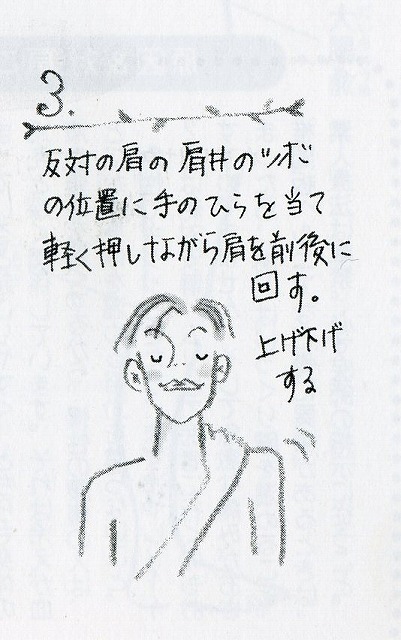 3.
反対の肩の肩井のツボ
の位置に手のひらを当て
軽く押しながら肩を前後に
回す。
上げ下げ
する